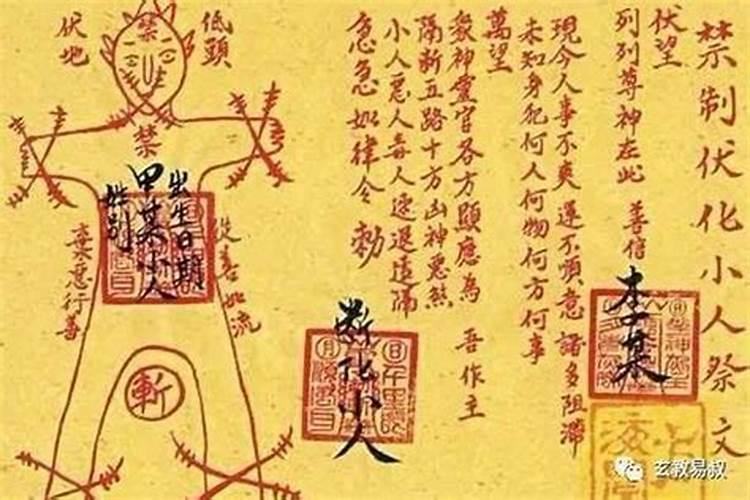 禁制伏化小人祭文
伏望
列列尊神在此 善信
李某
現今人事不爽運不順意諸多阻滯
未知身犯何人何物何方何事
萬望
眾神靈官各方顯應為 吾作主
隔斷五路十方凶神惡煞
小人惡人毒人速退遠隔
急急如律令 勅
斷化小人
低頭
伏地
禁
禁
出生日期
甲某小人
姓别
從善如流
棄惡行善
斬
玄教易叔